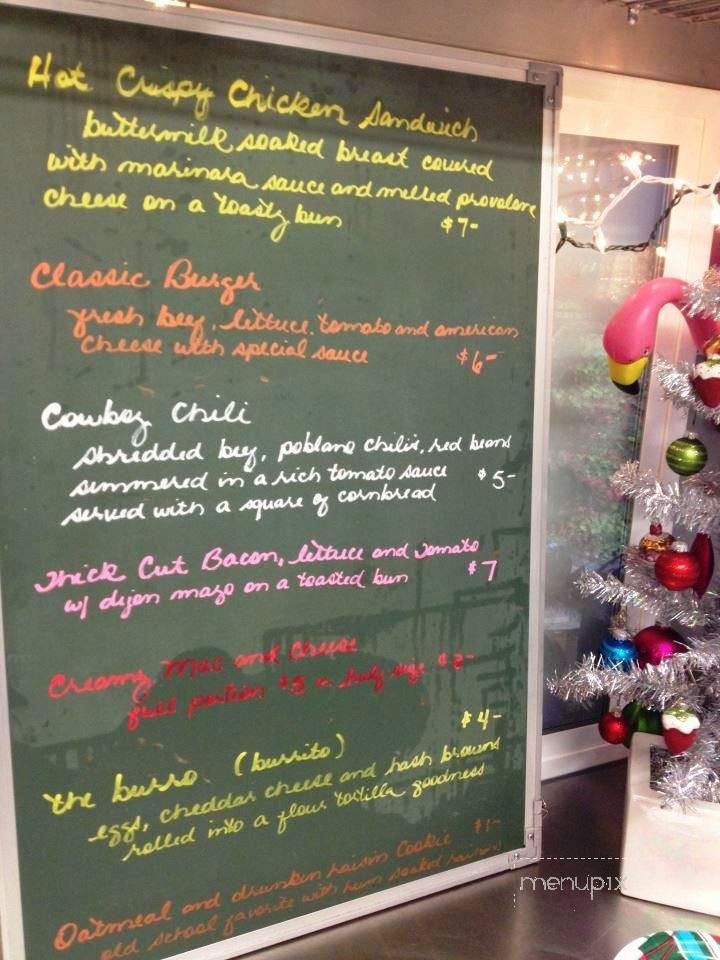 Hot Crispy Chicken Sandwich
buttermilk soaked breast covered
with marinara sauce and melted provalone
cheese on a toasty bun $7-
Classic Burger
fresh beef, lettuce, tomato and american
cheese with special sauce $6-
Cowboy Chili
shredded beef, poblano chilis, red beans
simmered in a rich tomato sauce $5-
served with a square of cornbread
Thick Cut Bacon, lettuce and Tomato
w/ dijon mayo on a toasted bun $7
Creamy Mac and Cheese
full portion $5 or half size $3-
$4-
the burro (burrito)
eggs, cheddar cheese and hash browns
rolled into a flour tortilla goodness
Oatmeal and drunken raisin Cookie $1-
old school favorite with rum soaked raisins
menupix